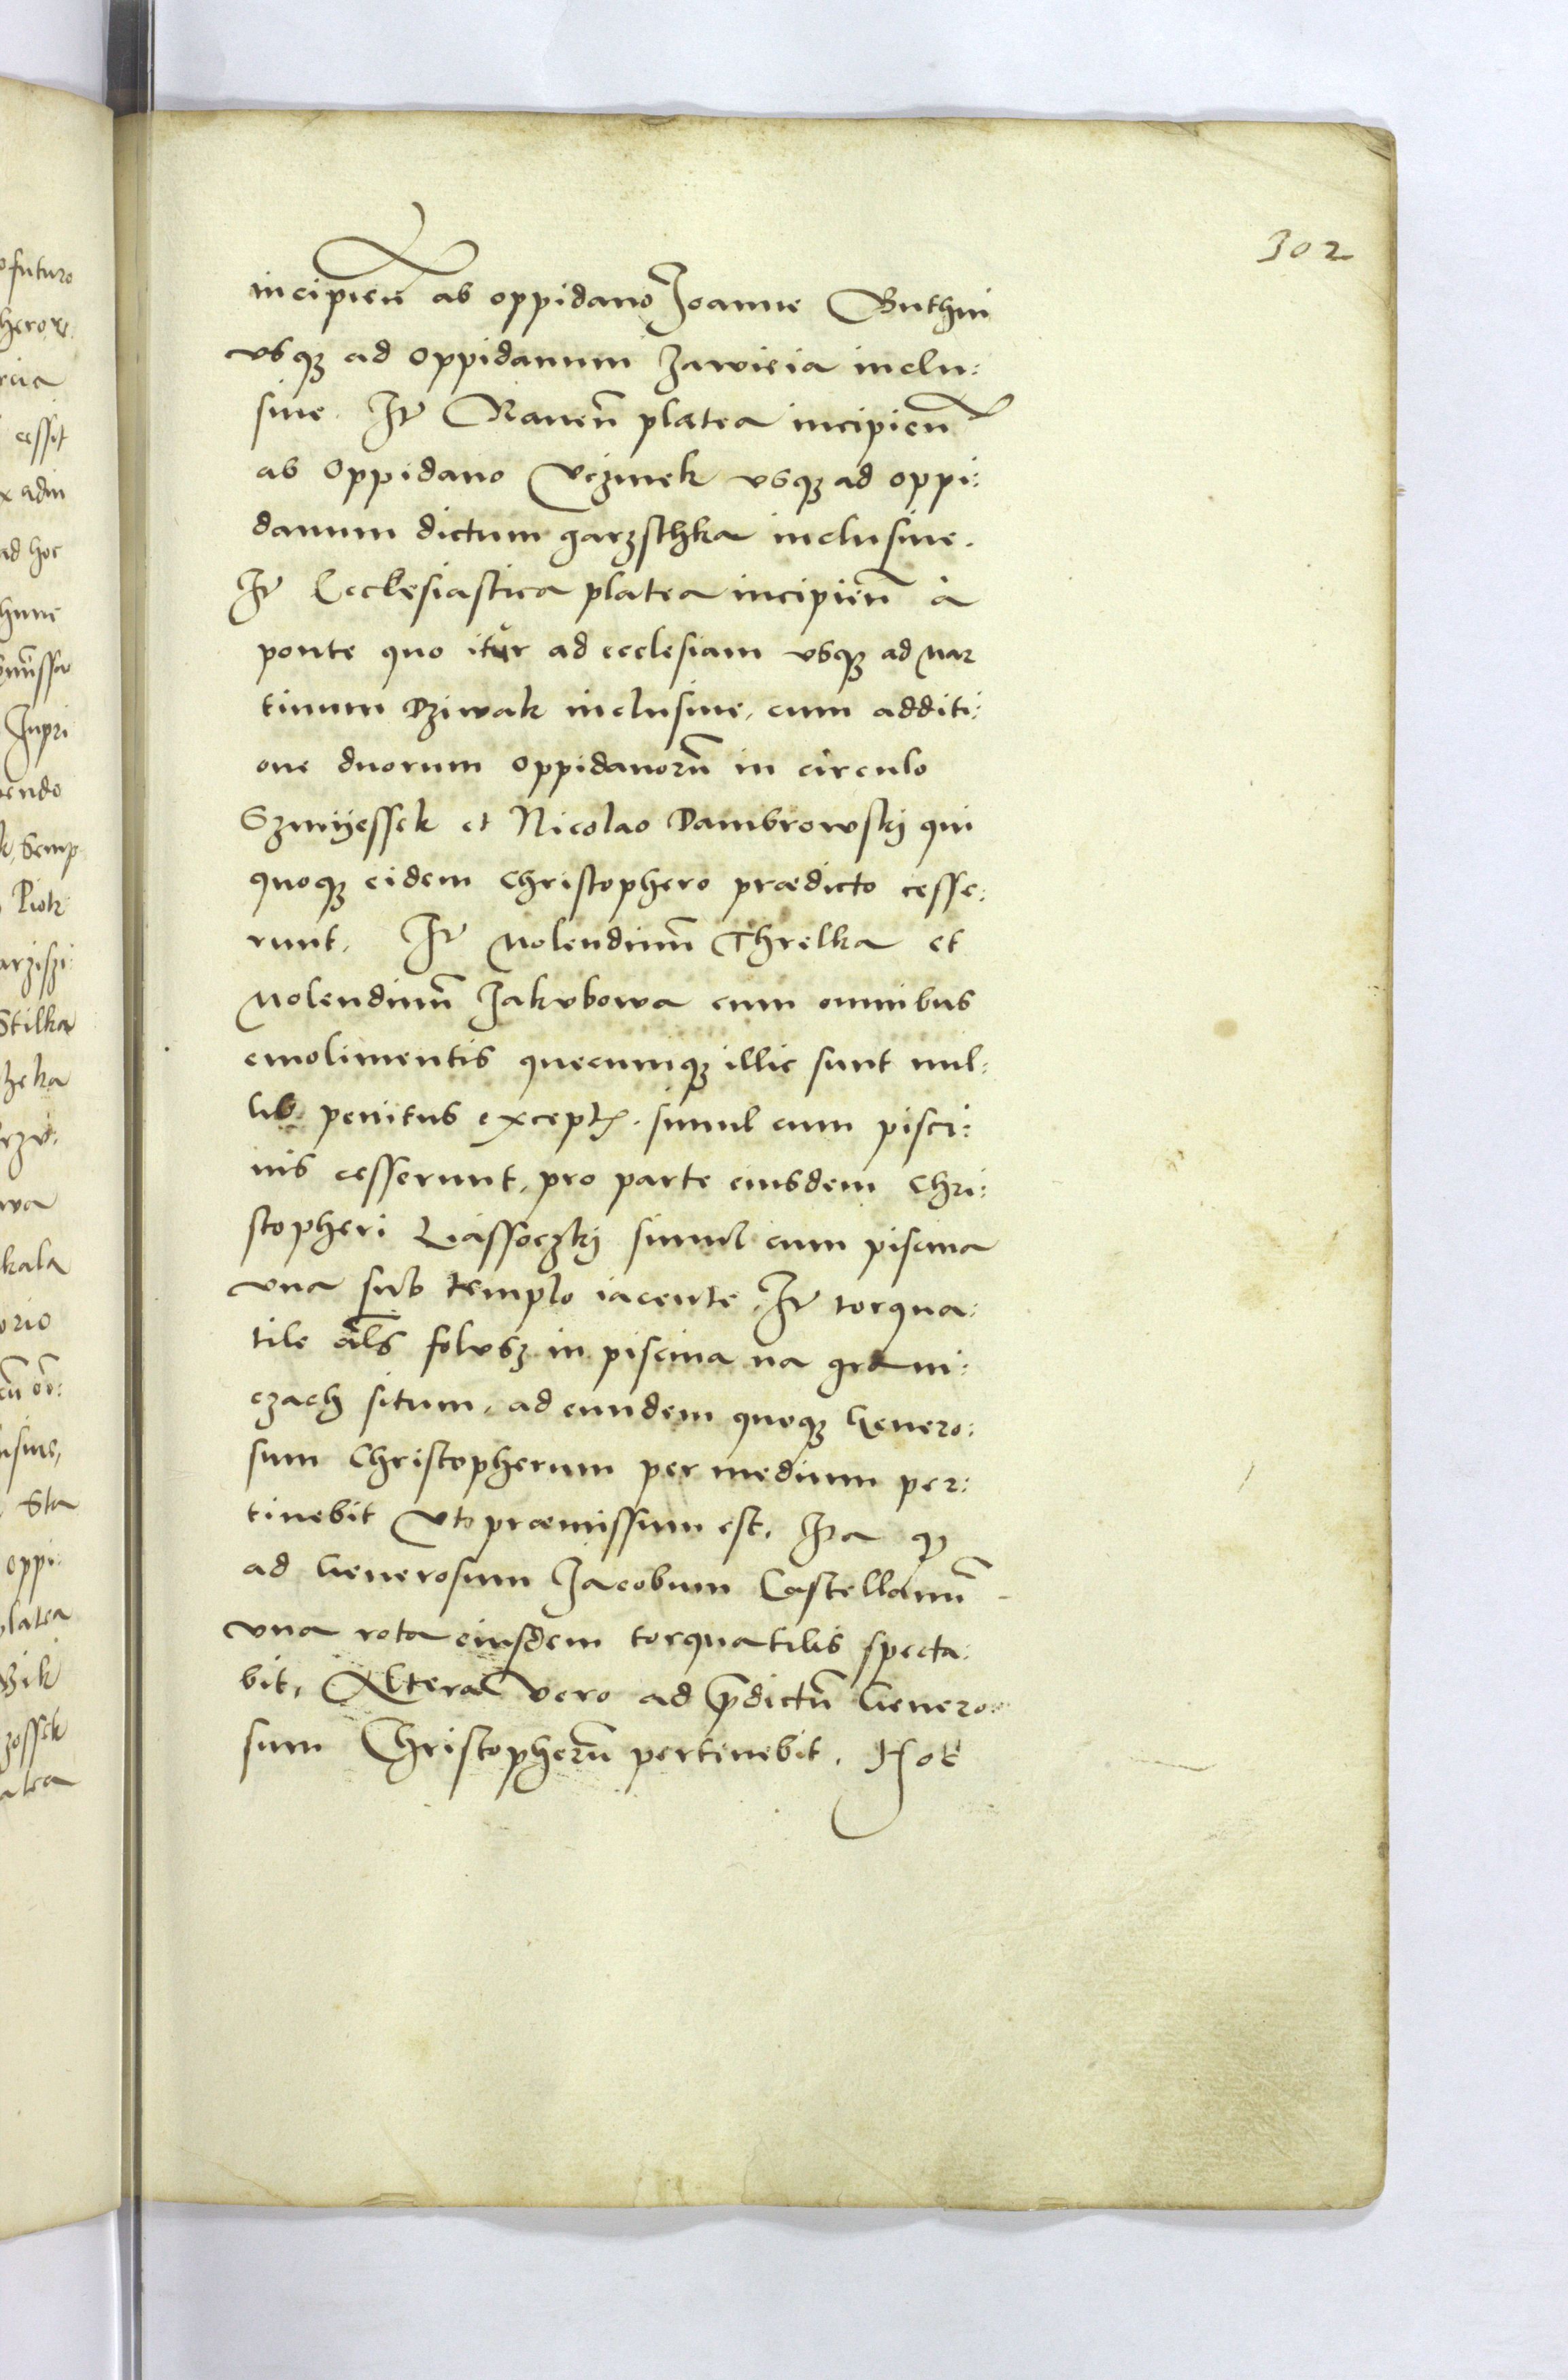 302
incipien̄ ab oppidano Joanne Guthni
vsqȝ ad oppidanum Zawieia inclu:
siue. It̄ Rauen̄ platea incipien̄
ab oppidano Vczmek vsqȝ ad oppi:
danum dictum garzschka inclusiue.
It̄ Ecclesiastica platea incipien̄ à
ponte quo itur ad ecclesiam vsqȝ ad Mar
tinum Dziwak inclusiue, cum additi:
one duorum oppidanorū in circulo
Szmyessek et Nicolao Dambrowskj qui
quoqȝ eidem Christophero prædicto cesse:
runt. It̄ Molendinū Threlka et
Molendinū Jakubowa cum omnibus
emolimentis quecumqȝ illic sunt nul:
lis penitus except. simul cum pisci:
nis cesserunt, pro parte eiusdem Chri:
stopheri Liassoczkj simul cum piscina
vna sub templo iacente. It̄ torqua:
tile al̄s folusz in piscina na grani:
czach situm, ad eundem quoqȝ Genero:
sum Christopherum per medium per:
tinebit vt præmissum est. Ita qȝ
ad Generosum Jacobum Castellanū
vna rota eiusdem torquatilis specta:
bit, Altera vero ad p̄dictū Genero:
sum Christopherū pertinebit. Hoc
ofuturo
cessit
ad hoc
Inpri
Semp
Piotr
Stilka
wa
kala
orio
Sta
oppi:
platea
zossek